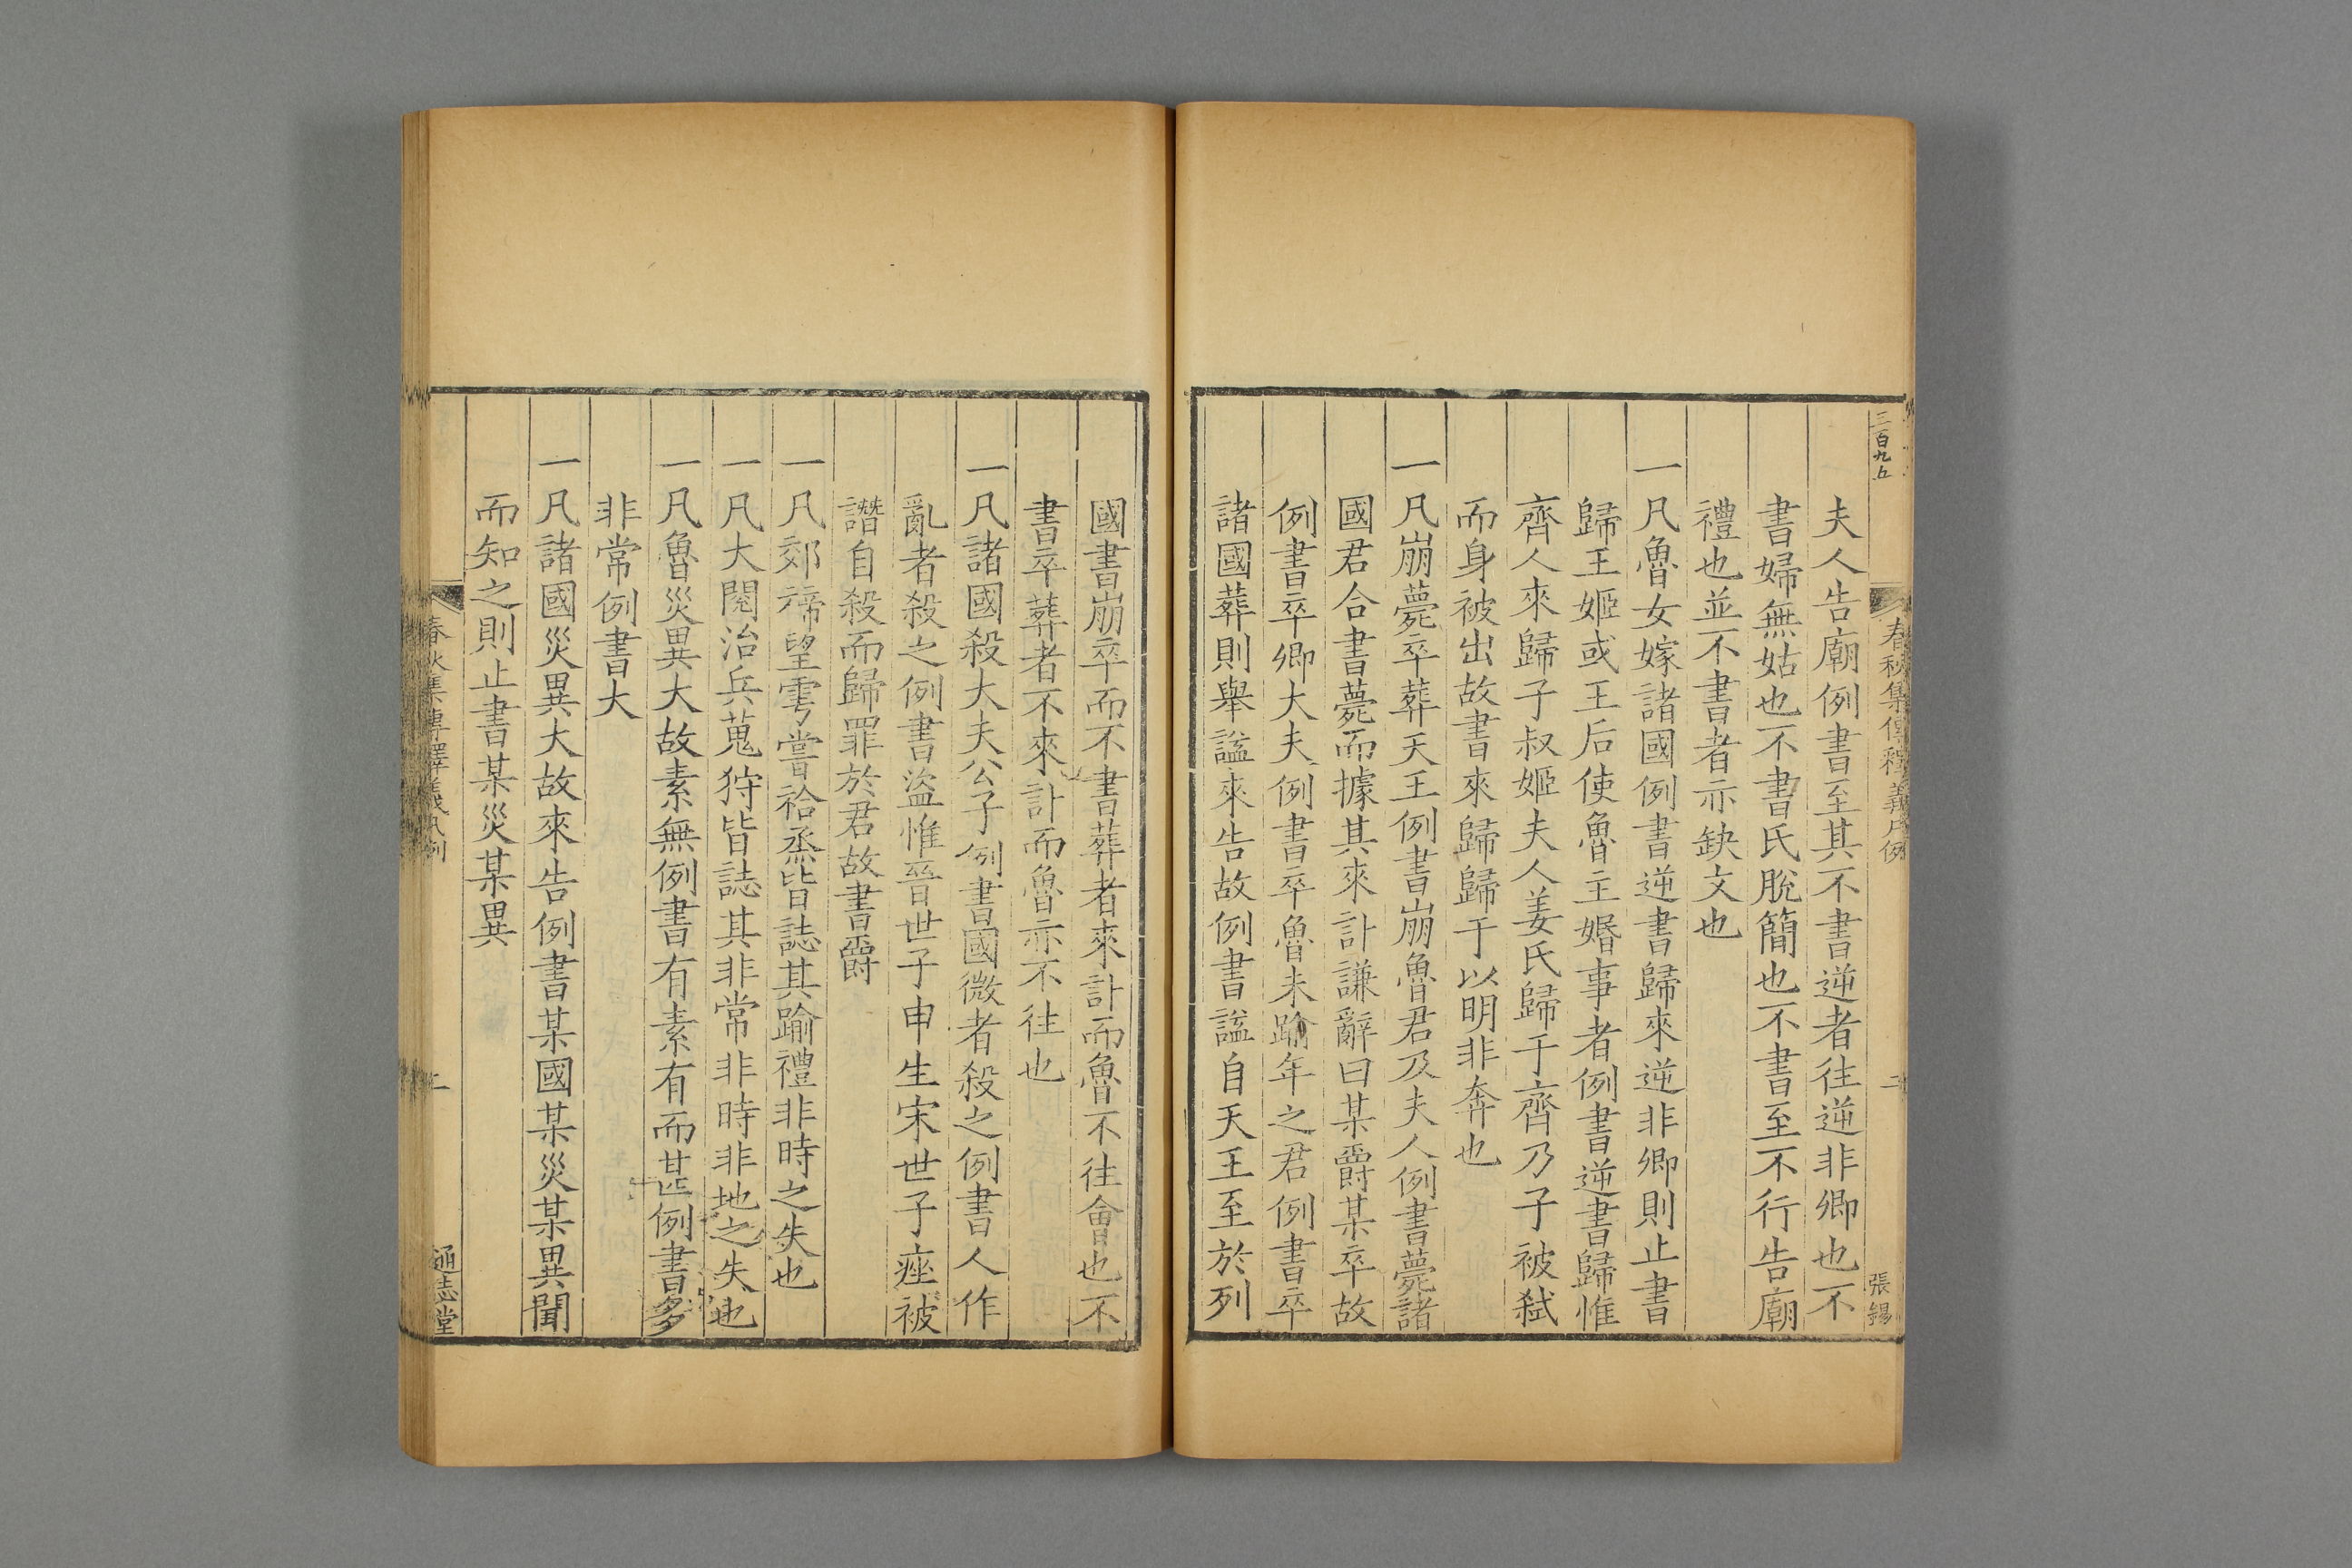 三百九五
春秋集傳釋義凡例
二
張錫
夫人告廟例書至其不書逆者往逆非卿也不
書婦無姑也不書氏脫簡也不書至不行告廟
禮也並不書者亦缺文也
一凡魯女嫁諸國例書逆書歸來逆非卿則止書
歸王姬或王后使魯主婚事者例書逆書歸惟
齊人來歸子叔姬夫人姜氏歸于齊乃子被弒
而身被出故書來歸歸于以明非奔也
一凡崩薨卒葬天王例書崩魯君及夫人例書薨諸
國君合書薨而據其來訃謙辭曰某爵某卒故
例書卒卿大夫例書卒魯未踰年之君例書卒
諸國葬則舉諡來告故例書諡自天王至於列
國書崩卒而不書葬者來訃而魯不往會也不
書卒葬者不來訃而魯亦不往也
一凡諸國殺大夫公子例書國微者殺之例書人作
亂者殺之例書盜惟晉世子申生宋世子痤被
譖自殺而歸罪於君故書爵
一凡郊禘望雩嘗祫烝皆誌其踰禮非時之失也
一凡大閱治兵蒐狩皆誌其非常非時非地之失也
一凡魯災異大故素無例書有素有而甚例書多
非常例書大
一凡諸國災異大故來告例書某國某災某異聞
而知之則止書某災某異
春秋集傳釋義凡例
通志堂